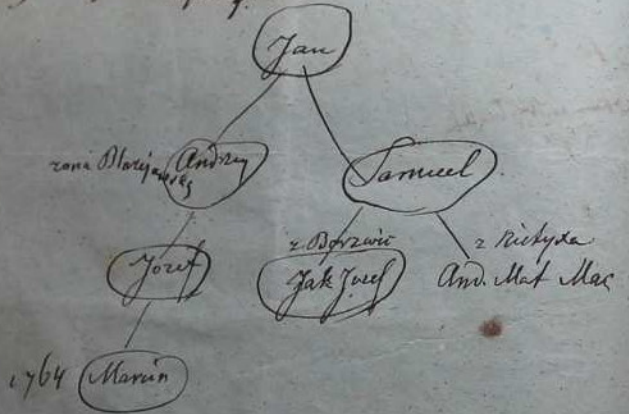 Jan
żona Błażejewską Andrzej
Samuel
Józef
z Borzewic
Jak Józef
z Kiełpsza
And. Mat Mac
1764 Marcin